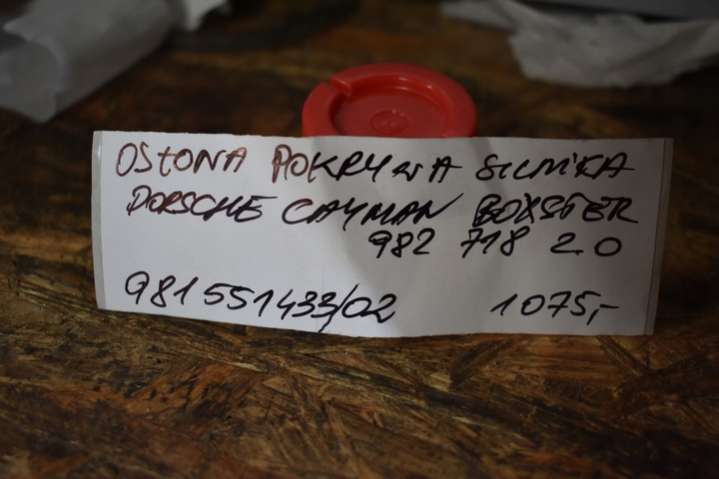 OSŁONA POKRYWA SILNIKA
PORSCHE CAYMAN BOXSTER
982 718 2.0
981551433/02 1075,-